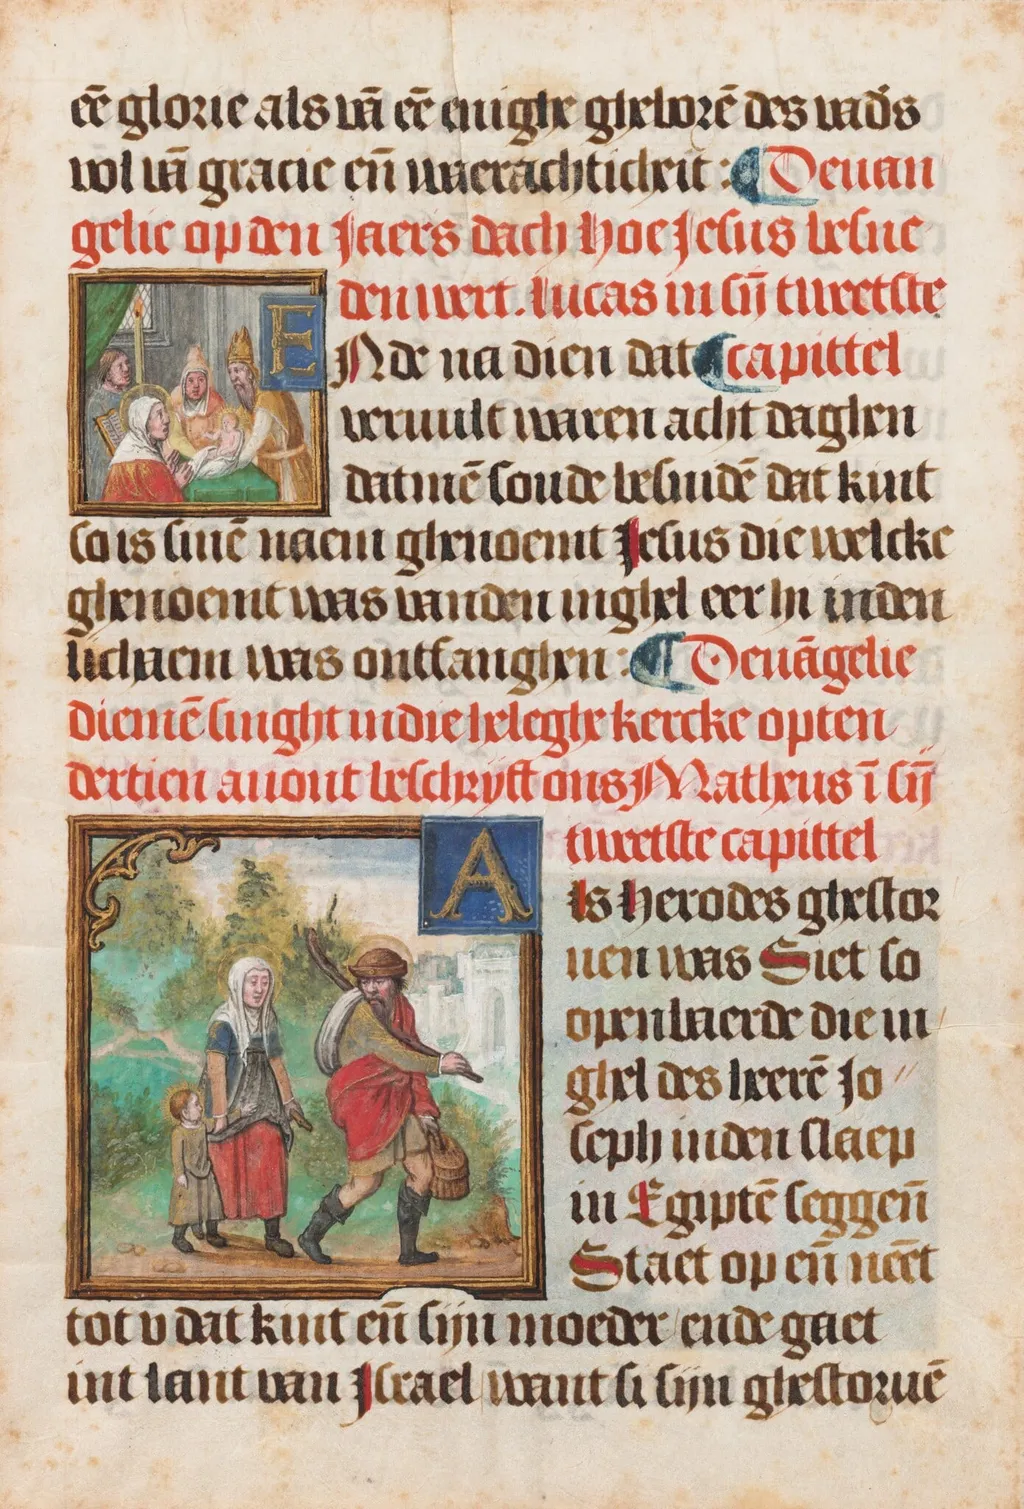 eē glorie als vā eē enighe gheborē des vad's
vol vā gracie eñ waerachticheit : ¶ Deuan
gelie op den Jaers dach hoe Jesus besne
den wert. Lucas in sijn tweetste
ENde na dien dat ¶ capittel
veruult waren acht daghen
datmē soude besnidē dat kint
so is sinē naem ghenoemt Jesus die welcke
ghenoemt was vanden inghel eer hi inden
lichaem was ontfanghen : ¶ Deuāgelie
diemē singht indie heleghe kercke opten
dertien auont beschrijft ons Matheus ī sijn
tweetste capittel
Als Herodes ghestor
uen was Siet so
openbaerde die in
ghel des heerē Jo
seph inden slaep
in Egiptē seggeñ
Staet op eñ neēt
tot v dat kint eñ sijn moeder ende gaet
int lant van Israel want si sijn ghestoruē